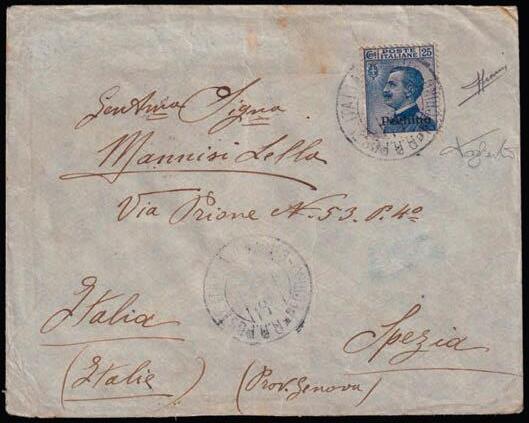 POSTE
ITALIANE
Cent 25
Pechino
Gentma Signa
Mannisi Lella
Via Prione N. 53. P. 4º
Italia
Spezia
(Italie)
(Prov. Genova)